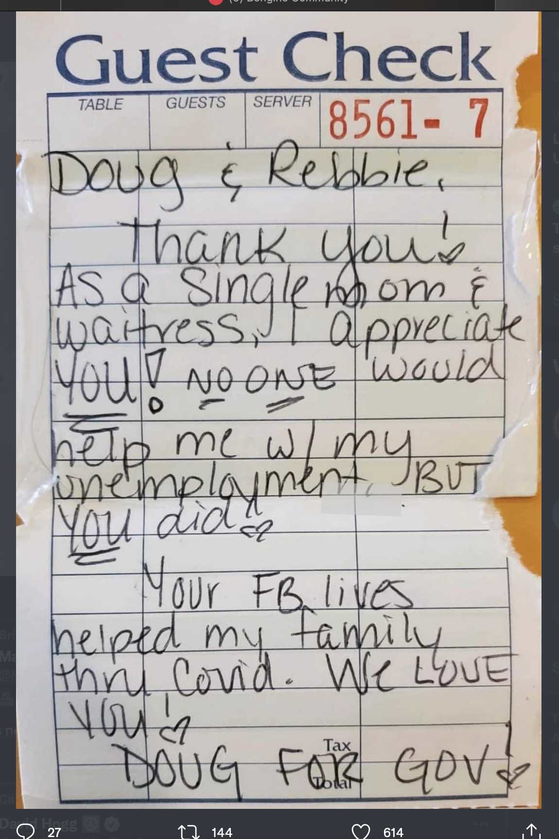 Guest Check
TABLE GUESTS SERVER
8561- 7
Doug & Rebbie,
Thank you!
As a Single mom &
waitress, I appreciate
YOU! NO ONE would
help me w/ my
unemployment, BUT
YOU did!
Your FB lives
helped my family
thru Covid. We LOVE
YOU!
Tax
DOUG FOR GOV!
Total
27 144 614